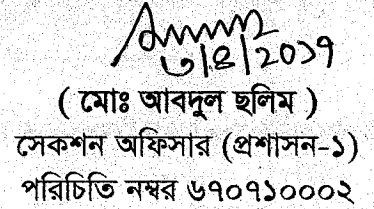 ৩|৪|২০১৭
( মোঃ আবদুল ছলিম )
সেকশন অফিসার (প্রশাসন-১)
পরিচিতি নম্বর ৬৭০৭১০০০২